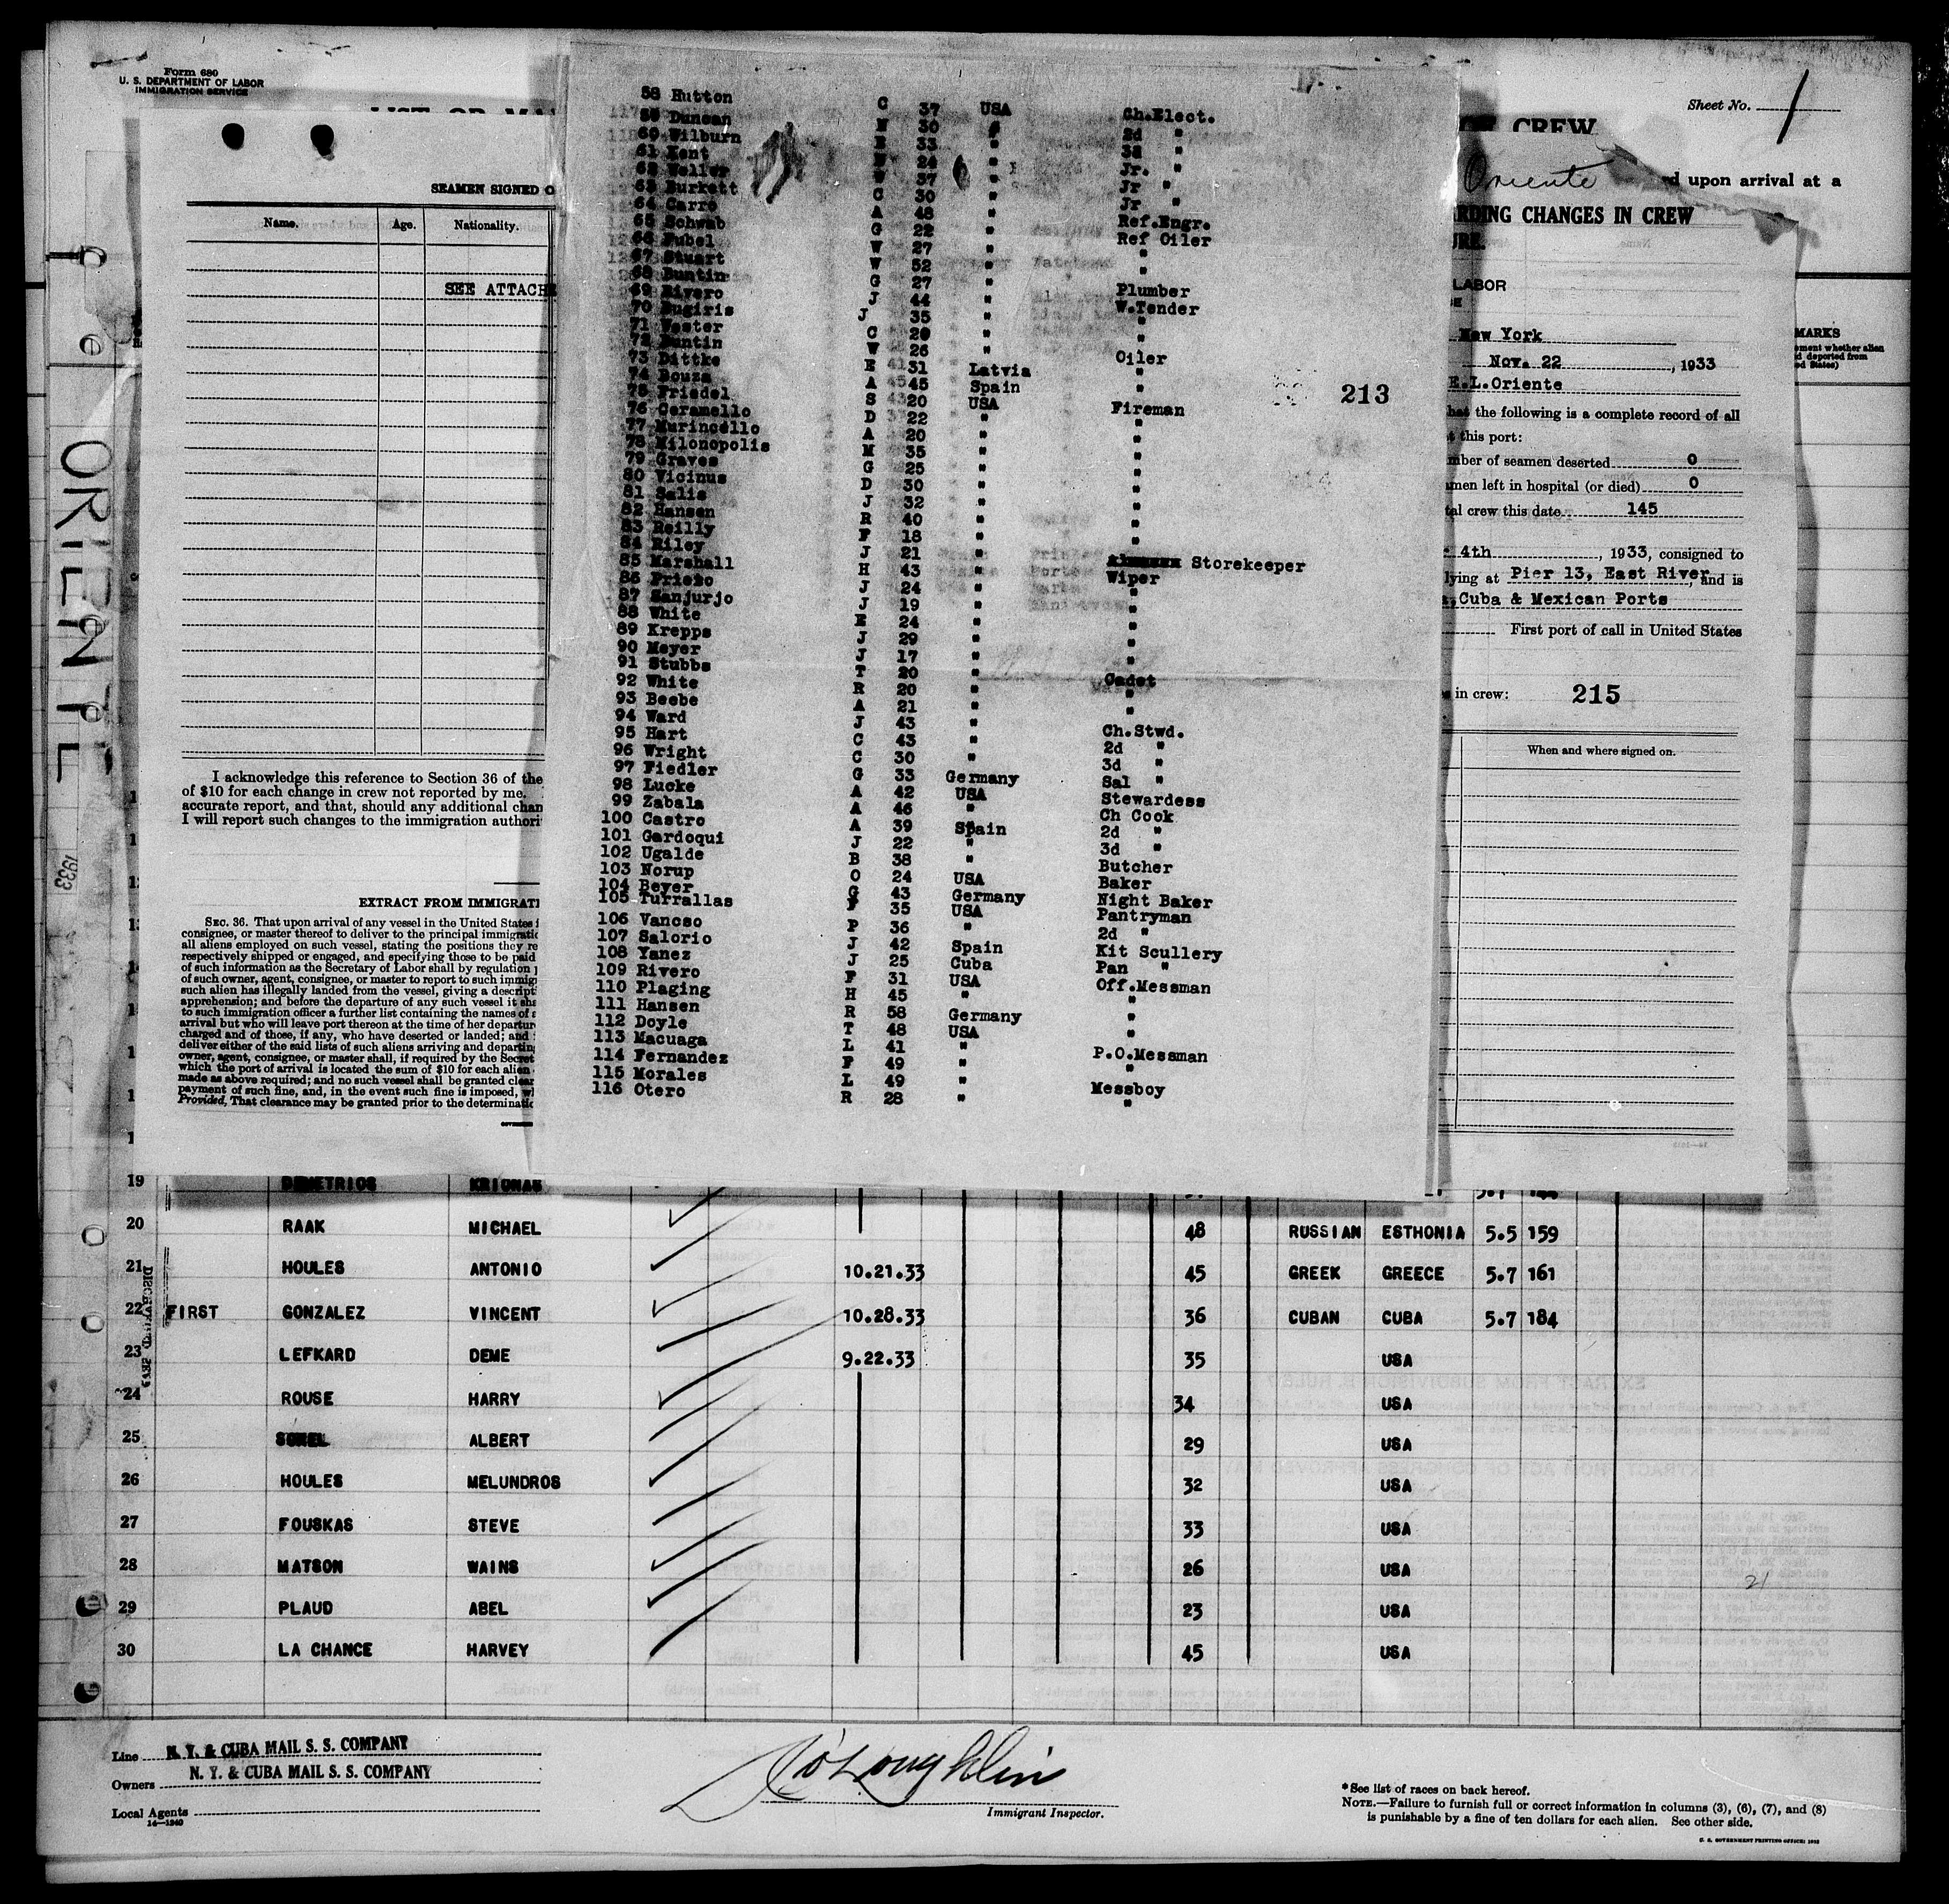 Form 680
U. S. DEPARTMENT OF LABOR
IMMIGRATION SERVICE
Sheet No. 1
CREW
Oriente
d upon arrival at a
SEAMEN SIGNED O
Name. Age. Nationality.
SEE ATTACHE
I acknowledge this reference to Section 36 of the
of $10 for each change in crew not reported by me.
accurate report, and that, should any additional chan
I will report such changes to the immigration authori
EXTRACT FROM IMMIGRATI
SEC. 36. That upon arrival of any vessel in the United States
consignee, or master thereof to deliver to the principal immigratio
all aliens employed on such vessel, stating the positions they re
respectively shipped or engaged, and specifying those to be paid
of such information as the Secretary of Labor shall by regulation
of such owner, agent, consignee, or master to report to such immig
such alien has illegally landed from the vessel, giving a descript
apprehension; and before the departure of any such vessel it sha
to such immigration officer a further list containing the names of
arrival but who will leave port thereon at the time of her departur
charged and of those, if any, who have deserted or landed; and
deliver either of the said lists of such aliens arriving and departin
owner, agent, consignee, or master shall, if required by the Secret
which the port of arrival is located the sum of $10 for each alien
made as above required; and no such vessel shall be granted clear
payment of such fine, and, in the event such fine is imposed, w
Provided, That clearance may be granted prior to the determinatio
58 Hutton C 37 USA Ch.Elect.
59 Duncan 30 " 2d "
60 Wilburn 33 " 3d "
61 Kent 24 " Jr. "
62 Weller W 37 " Jr "
63 Burkett C 30 " Jr "
64 Carro A 48 " Ref.Engr.
65 Schwab G 22 " Ref Oiler
66 Fubel W 27 " "
67 Stuart W 52 " "
68 Buntin G 27 " Plumber
69 Rivero J 44 " W.Tender
70 Bugiris J 35 " "
71 Wester C 28 " "
72 Buntin W 26 " Oiler
73 Dittke E 31 Latvia "
74 Bouza A 45 Spain "
75 Friedel S 20 USA Fireman
76 Ceramello D 22 " "
77 Murincello A 20 " "
78 Milonopolis M 35 " "
79 Graves G 25 " "
80 Vicinus D 30 " "
81 Salis J 32 " "
82 Hansen R 40 " "
83 Reilly F 18 " "
84 Riley J 21 " "
85 Marshall H 43 " Storekeeper
86 Prieto J 24 " Wiper
87 Sanjurjo J 19 " "
88 White E 24 " "
89 Krepps J 29 " "
90 Meyer J 17 " "
91 Stubbs T 20 " "
92 White R 20 " Cadet
93 Beebe A 21 " "
94 Ward J 43 " "
95 Hart C 43 " Ch.Stwd.
96 Wright C 30 " 2d "
97 Fiedler G 33 Germany 3d "
98 Lucke A 42 USA Sal "
99 Zabala A 46 " Stewardess
100 Castro A 39 Spain Ch Cook
101 Gardoqui J 22 " 2d "
102 Ugalde B 38 " 3d "
103 Norup O 24 USA Butcher
104 Beyer G 43 Germany Baker
105 Turrallas F 35 USA Night Baker
106 Vancso P 36 " Pantryman
107 Salorio J 42 Spain 2d "
108 Yanez J 25 Cuba Kit Scullery
109 Rivero F 31 USA Pan "
110 Plaging H 45 " Off.Messman
111 Hansen R 58 Germany "
112 Doyle T 48 USA "
113 Macuaga L 41 " "
114 Fernandez F 49 " P.O.Messman
115 Morales L 49 " "
116 Otero R 28 " Messboy
"
213
RDING CHANGES IN CREW
LABOR
New York
Nov. 22, 1933
E.L.Oriente
hat the following is a complete record of all
t this port:
mber of seamen deserted 0
men left in hospital (or died) 0
tal crew this date 145
4th, 1933, consigned to
lying at Pier 13, East River, and is
, Cuba & Mexican Ports
First port of call in United States
in crew: 215
When and where signed on.
MARKS
ement whether alien
d deported from
ed States)
ORIENTE
1933
19 DEMETRIOS KRIONAS
20 RAAK MICHAEL 48 RUSSIAN ESTHONIA 5.5 159
21 HOULES ANTONIO 10.21.33 45 GREEK GREECE 5.7 161
22 FIRST GONZALEZ VINCENT 10.28.33 36 CUBAN CUBA 5.7 184
23 LEFKARD DEME 9.22.33 35 USA
24 ROUSE HARRY 34 USA
25 ALBERT 29 USA
26 HOULES MELUNDROS 32 USA
27 FOUSKAS STEVE 33 USA
28 MATSON WAINS 26 USA
29 PLAUD ABEL 23 USA
30 LA CHANCE HARVEY 45 USA
21
Line N. Y. & CUBA MAIL S. S. COMPANY
Owners N. Y. & CUBA MAIL S. S. COMPANY
Local Agents
14—1240
O'Loughlin
Immigrant Inspector.
*See list of races on back hereof.
NOTE.—Failure to furnish full or correct information in columns (3), (6), (7), and (8)
is punishable by a fine of ten dollars for each alien. See other side.
U. S. GOVERNMENT PRINTING OFFICE: 1932